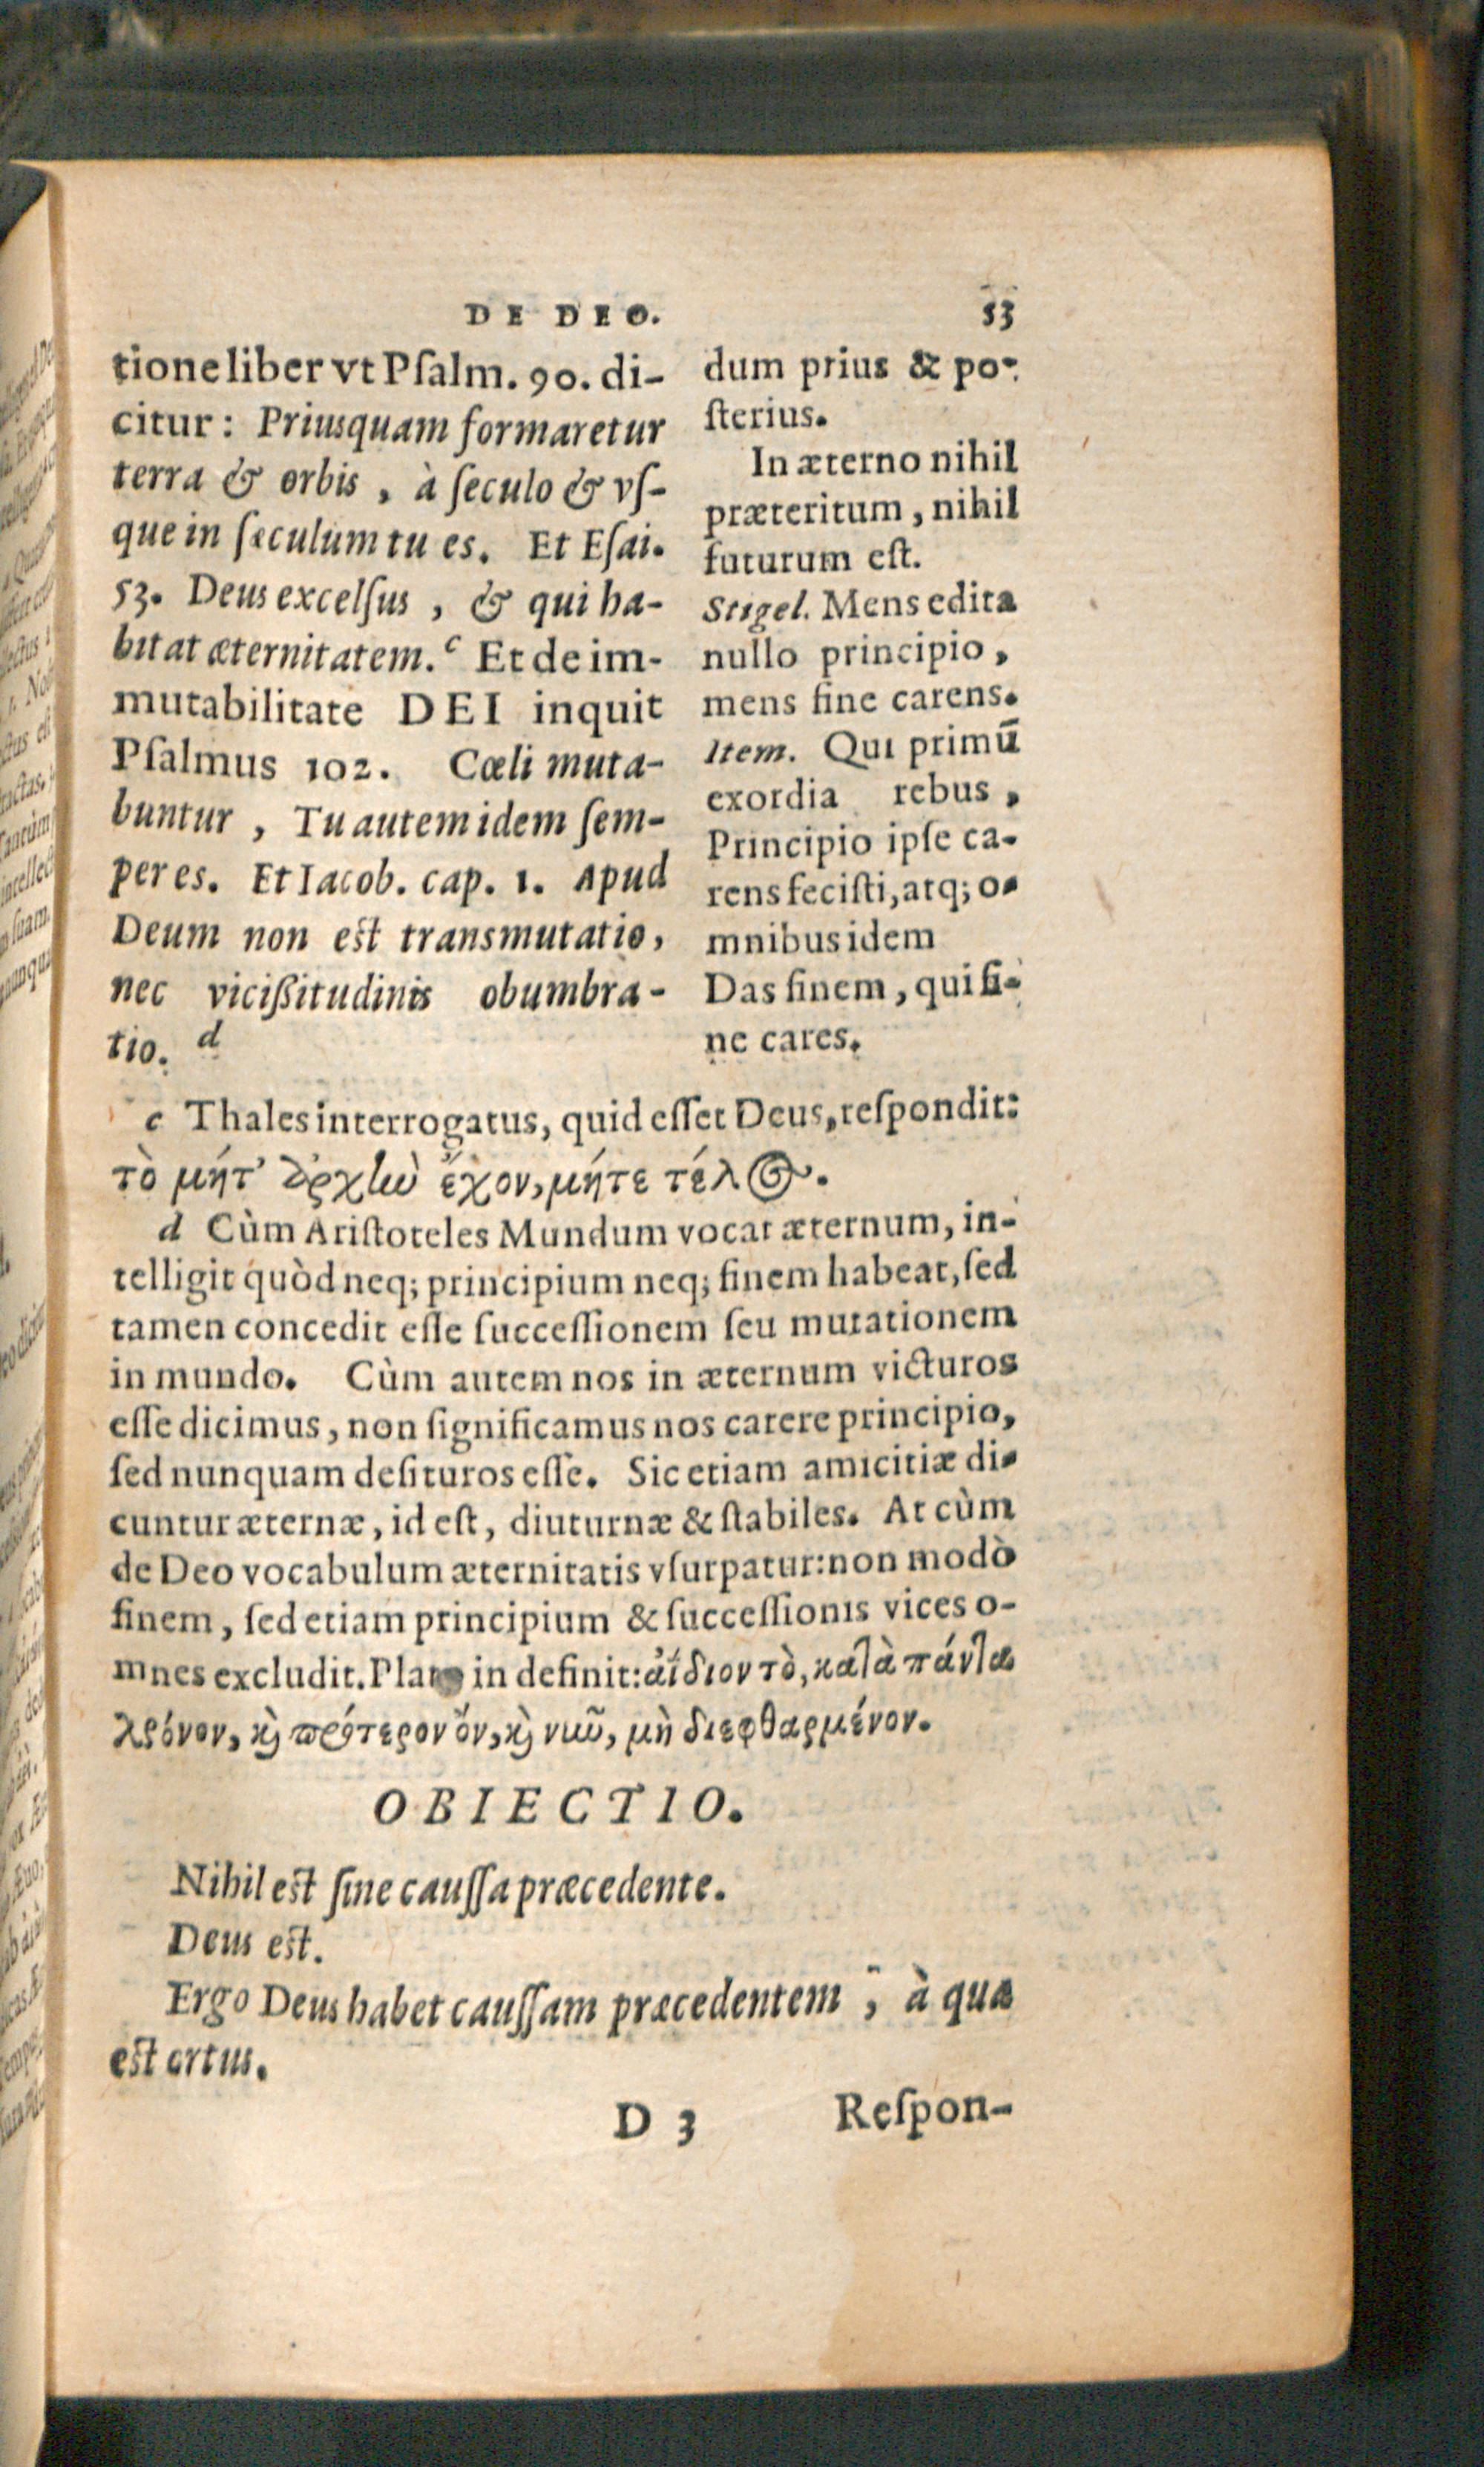 DE DEO. 53
tione liber vt Psalm. 90. di-
citur: Priusquam formaretur
terra & orbis, à seculo & vs-
que in sæculum tu es. Et Esai.
53. Deus excelsus, & qui ha-
bitat æternitatem. c Et de im-
mutabilitate DEI inquit
Psalmus 102. Cœli muta-
buntur, Tu autem idem sem-
per es. Et Iacob. cap. 1. Apud
Deum non est transmutatio,
nec vicißitudinis obumbra-
tio. d
dum prius & po-
sterius.
In æterno nihil
præteritum, nihil
futurum est.
Stigel. Mens edita
nullo principio,
mens fine carens.
Item. Qui primū
exordia rebus,
Principio ipse ca-
rens fecisti, atq; o-
mnibus idem
Das finem, qui fi-
ne cares.
c Thales interrogatus, quid esset Deus, respondit:
τὸ μήτ' ἀρχὴν ἔχον, μήτε τέλος.
d Cùm Aristoteles Mundum vocat æternum, in-
telligit quòd neq; principium neq; finem habeat, sed
tamen concedit esse successionem seu mutationem
in mundo. Cùm autem nos in æternum victuros
esse dicimus, non significamus nos carere principio,
sed nunquam desituros esse. Sic etiam amicitiæ di-
cuntur æternæ, id est, diuturnæ & stabiles. At cùm
de Deo vocabulum æternitatis vsurpatur: non modò
finem, sed etiam principium & successionis vices o-
mnes excludit. Plato in definit: ἀΐδιον τὸ, κατὰ πάντα
χρόνον, καὶ πρότερον ὄν, καὶ νῦν, μὴ διεφθαρμένον.
OBIECTIO.
Nihil est sine caussa præcedente.
Deus est.
Ergo Deus habet caussam præcedentem, à qua
est ortus.
D 3 Respon-